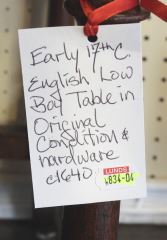 Early 17th C.
English Low
Boy Table in
Original
Condition &
hardware
c1640
LUNDS
L834-04